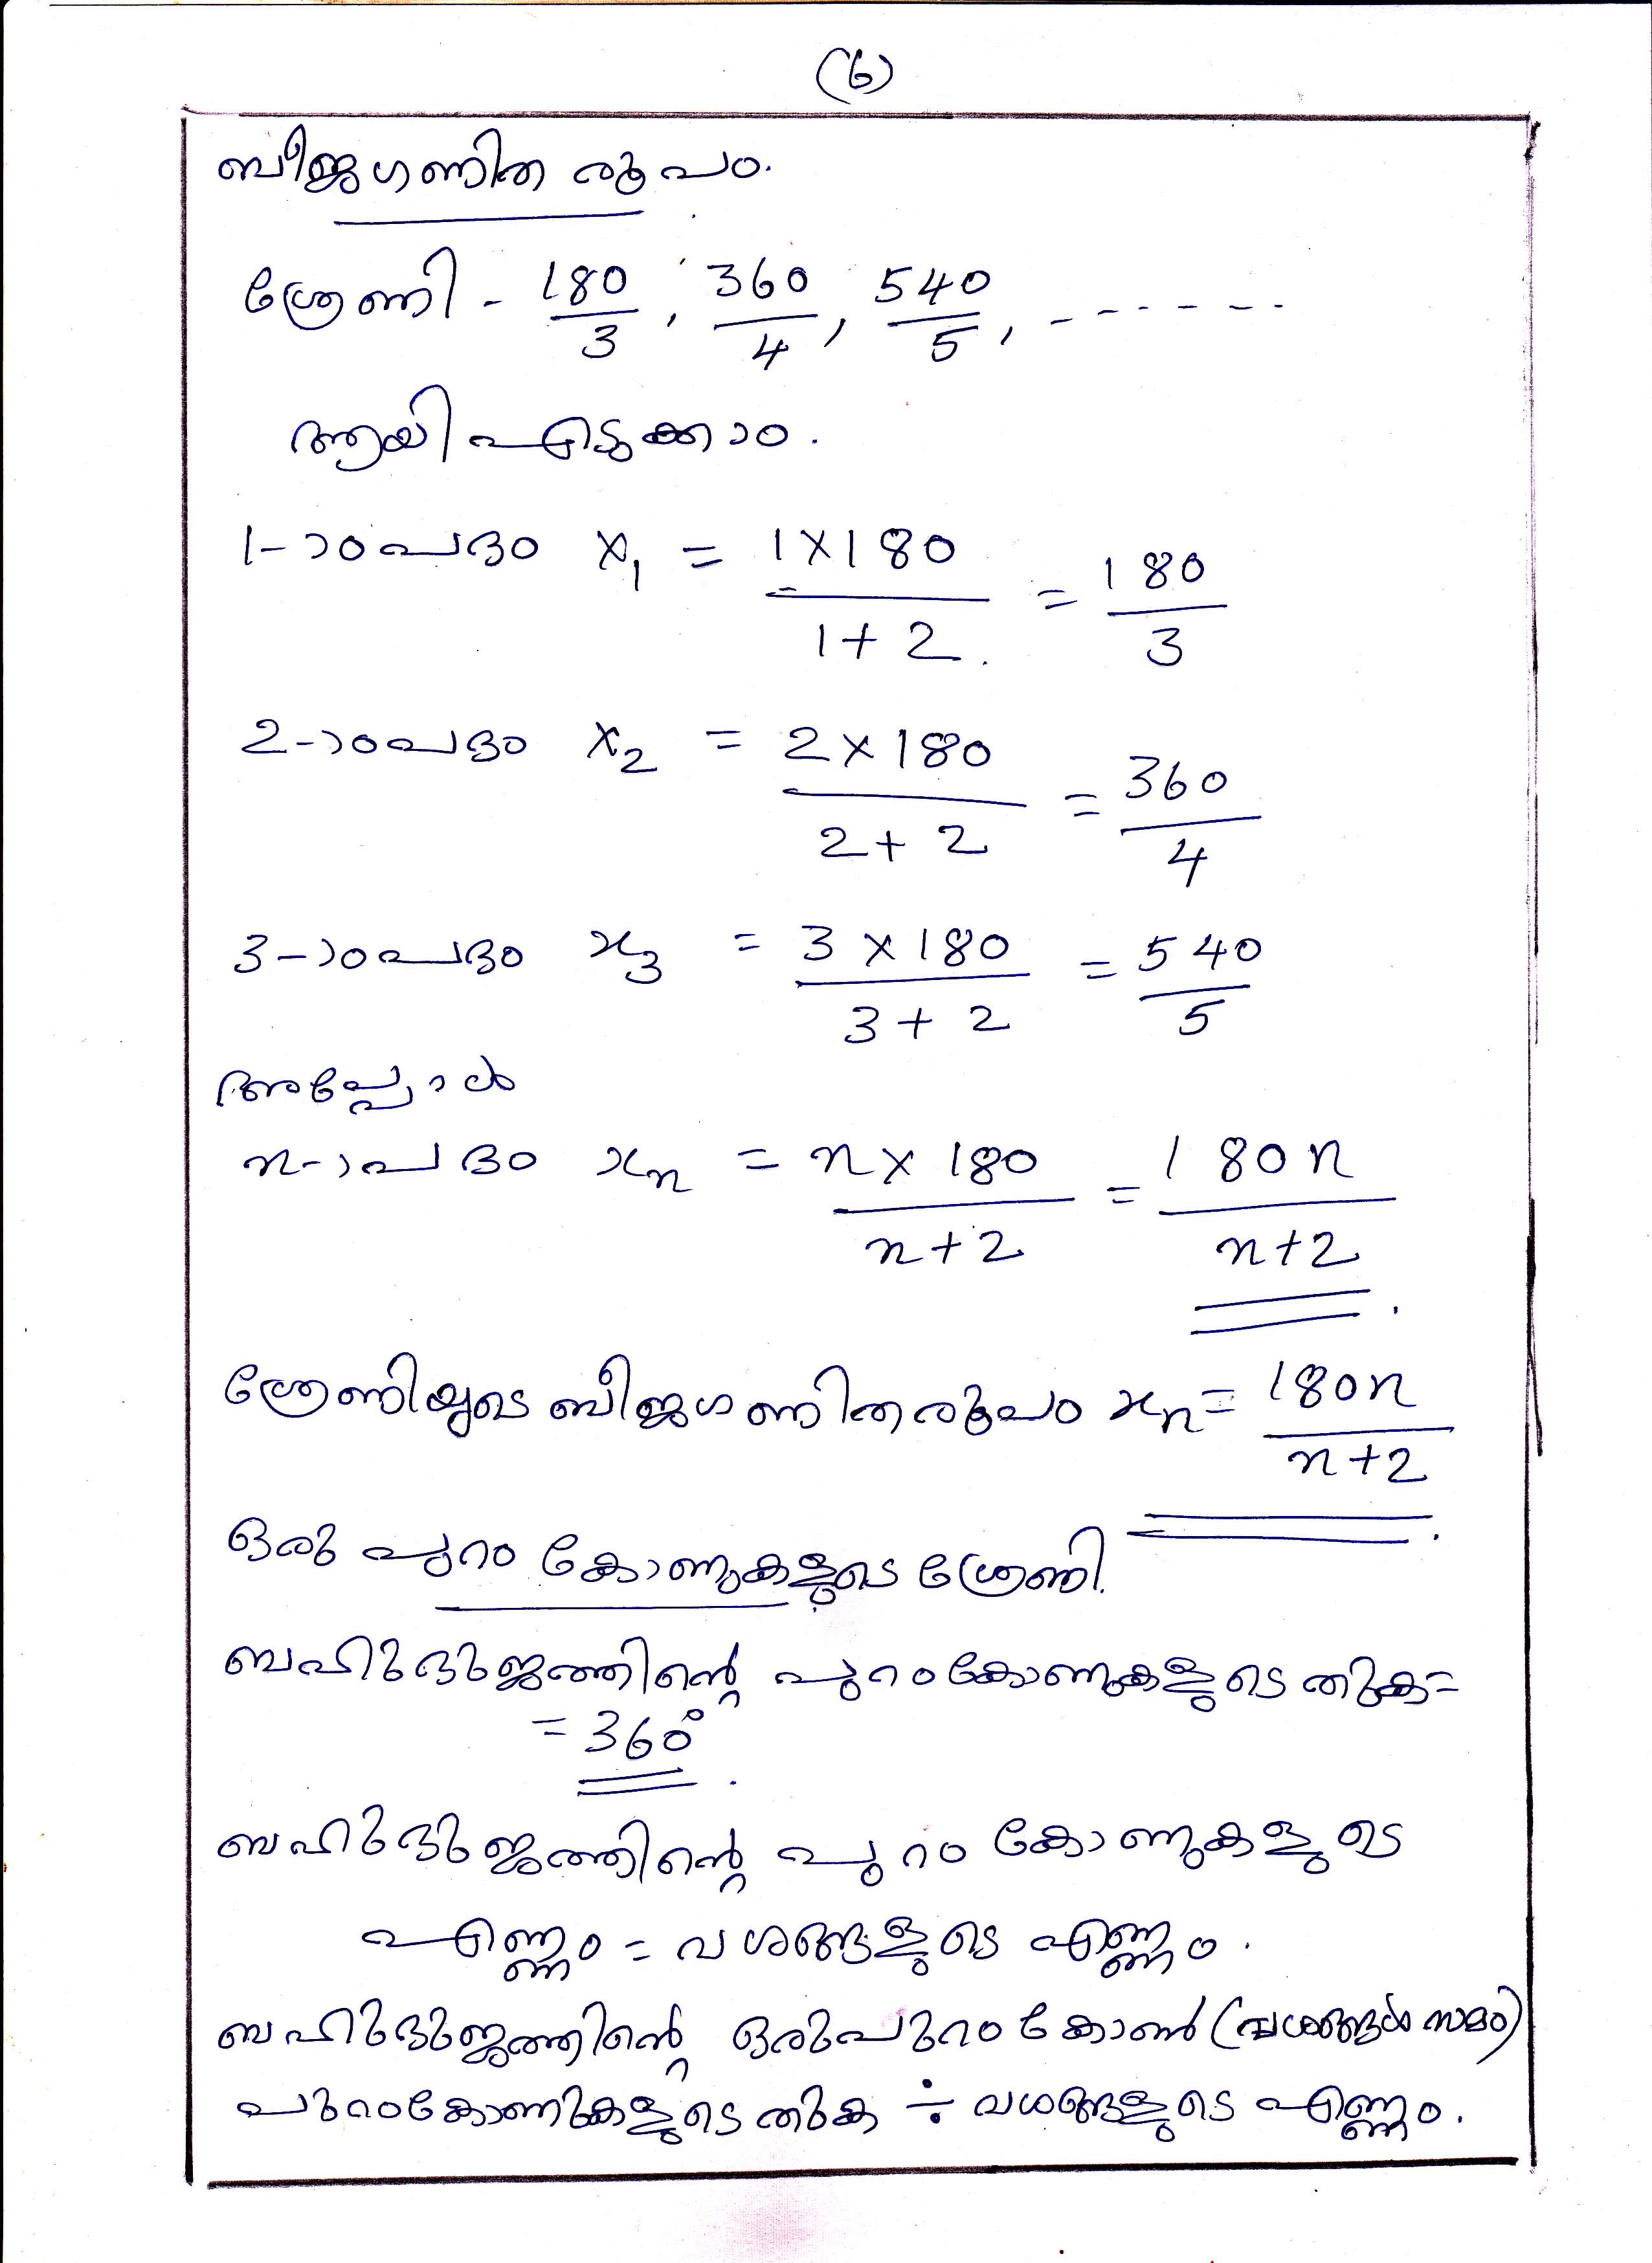 (6)
ബീജഗണിത രൂപം.
ശ്രേണി - 180/3, 360/4, 540/5, ------
ആയി എടുക്കാം.
1-ാം പദം x₁ = 1×180/1+2 = 180/3
2-ാം പദം x₂ = 2×180/2+2 = 360/4
3-ാം പദം x₃ = 3×180/3+2 = 540/5
അപ്പോൾ
n-ാ പദം xₙ = n×180/n+2 = 180n/n+2.
ശ്രേണിയുടെ ബീജഗണിതരൂപം xₙ = 180n/n+2.
ഒരു പുറം കോണുകളുടെ ശ്രേണി.
ബഹുഭുജത്തിന്റെ പുറംകോണുകളുടെ തുക =
= 360°.
ബഹുഭുജത്തിന്റെ പുറം കോണുകളുടെ
എണ്ണം = വശങ്ങളുടെ എണ്ണം.
ബഹുഭുജത്തിന്റെ ഒരു പുറം കോൺ (വശങ്ങൾ സമം)
പുറംകോണുകളുടെ തുക ÷ വശങ്ങളുടെ എണ്ണം.